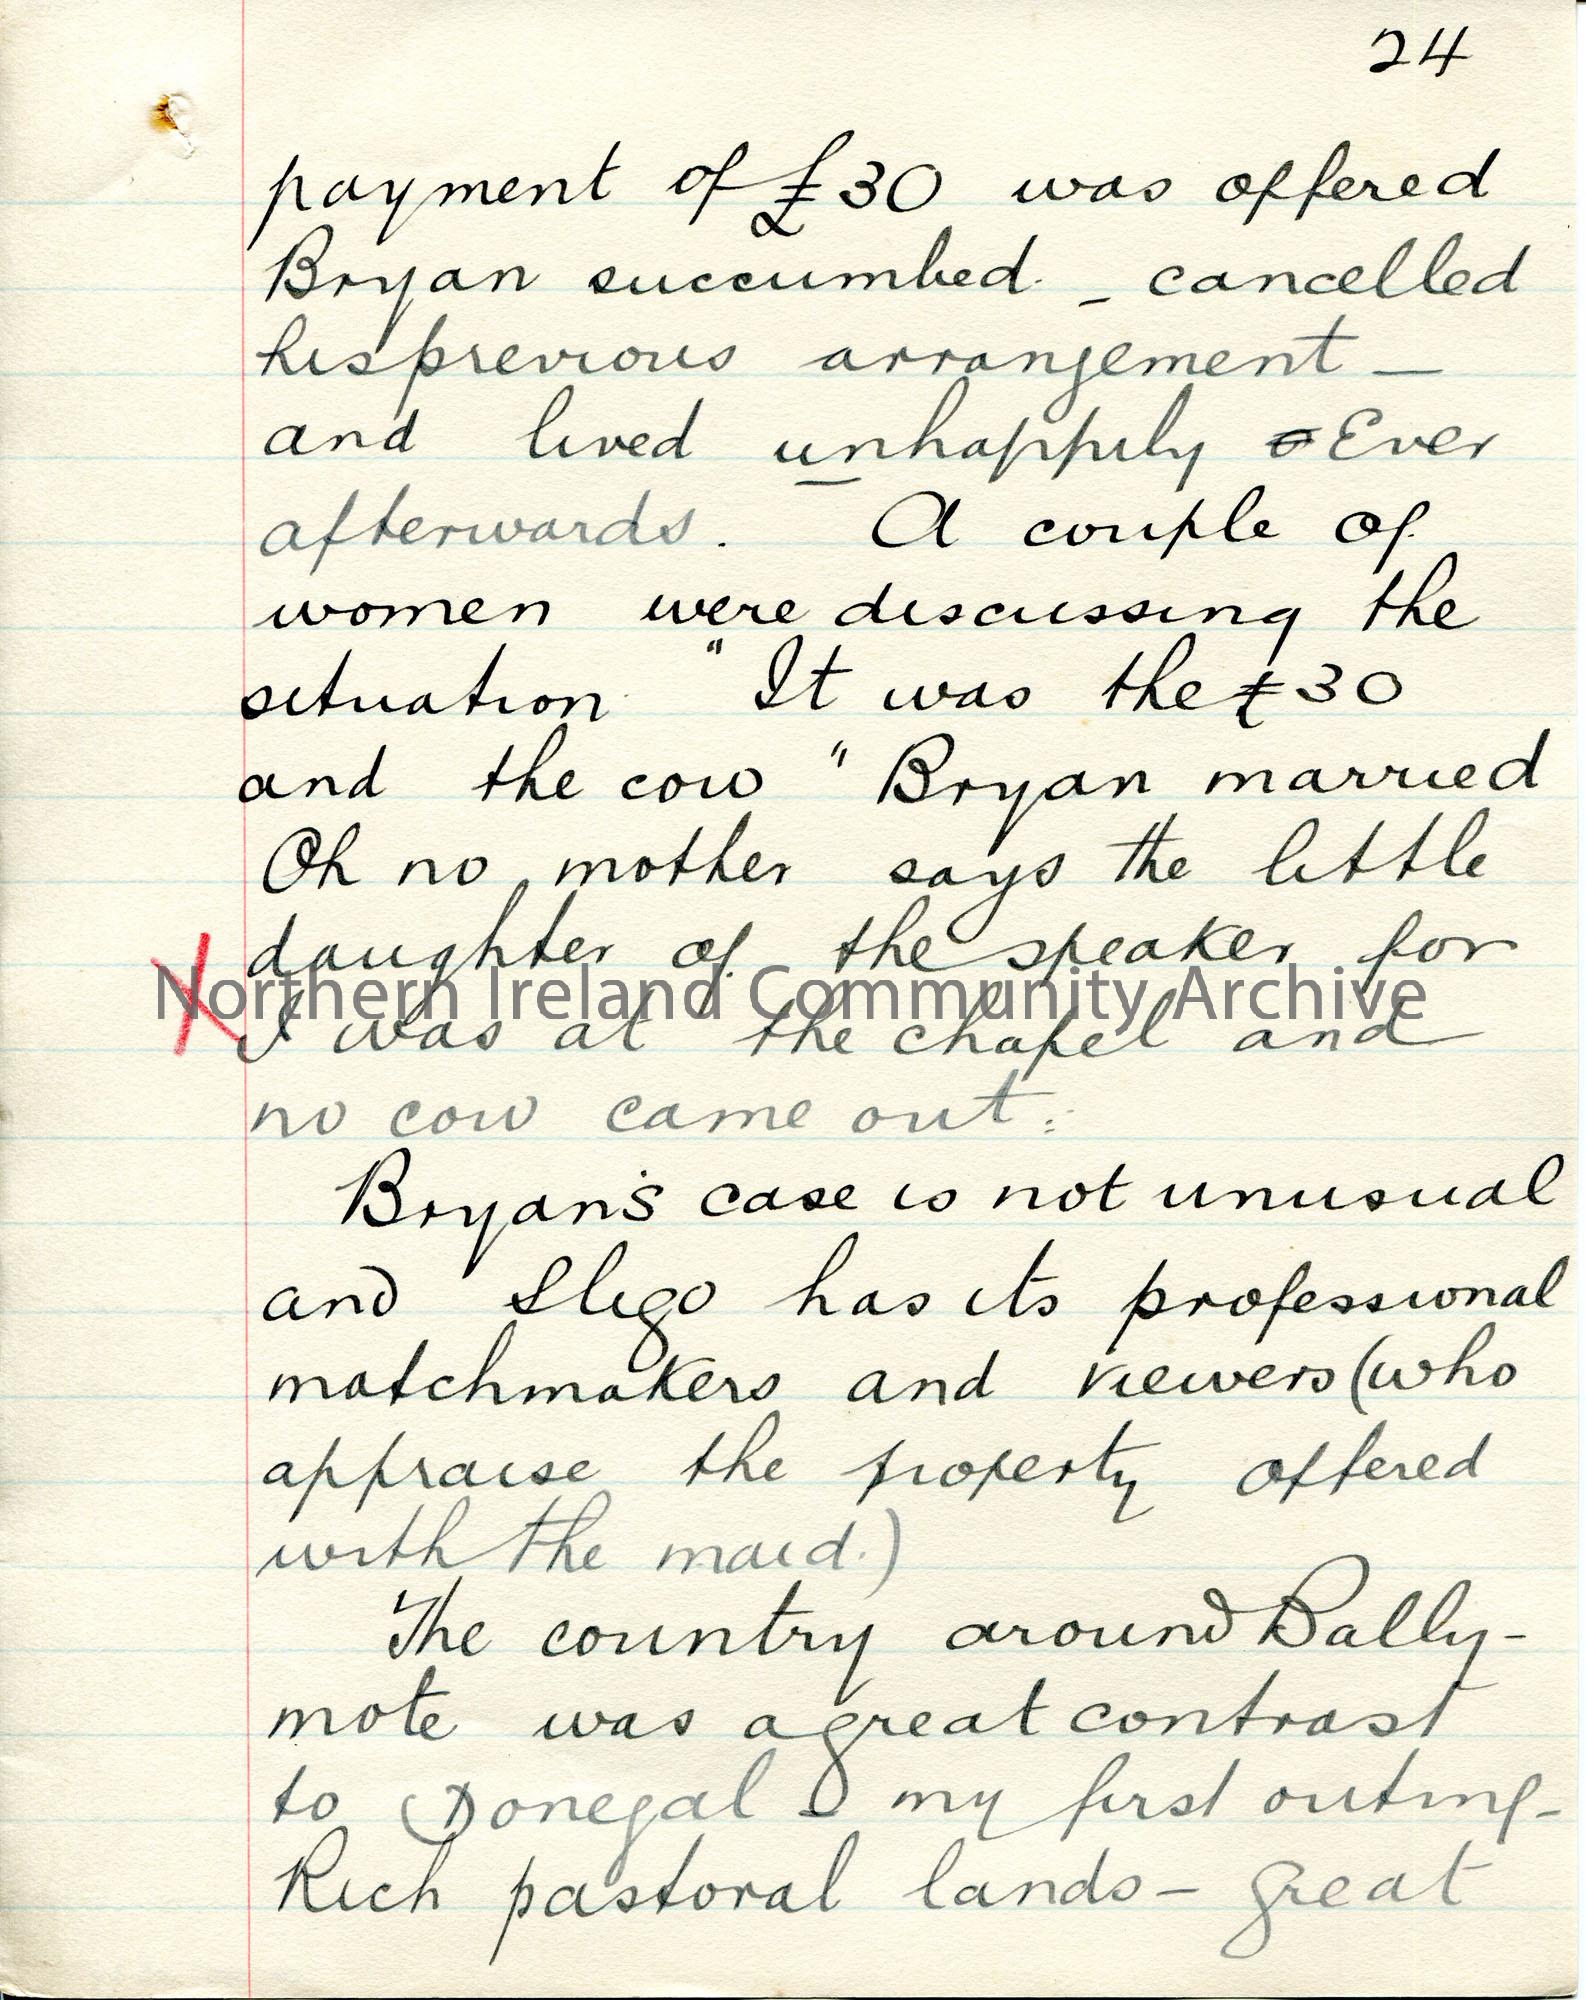 24
payment of £30 was offered
Bryan succumbed - cancelled
his previous arrangement —
and lived unhappily Ever
afterwards. A couple of
women were discussing the
situation "It was the £30
and the cow " Bryan married
Oh no mother says the little
daughter of the speaker for
X
Northern Ireland Community Archive
I was at the chapel and
no cow came out.
Bryan's case is not unusual
and Sligo has its professional
matchmakers and viewers (who
appraise the property offered
with the maid.)
The country around Bally-
mote was a great contrast
to Donegal my first outing-
Rich pastoral lands – great